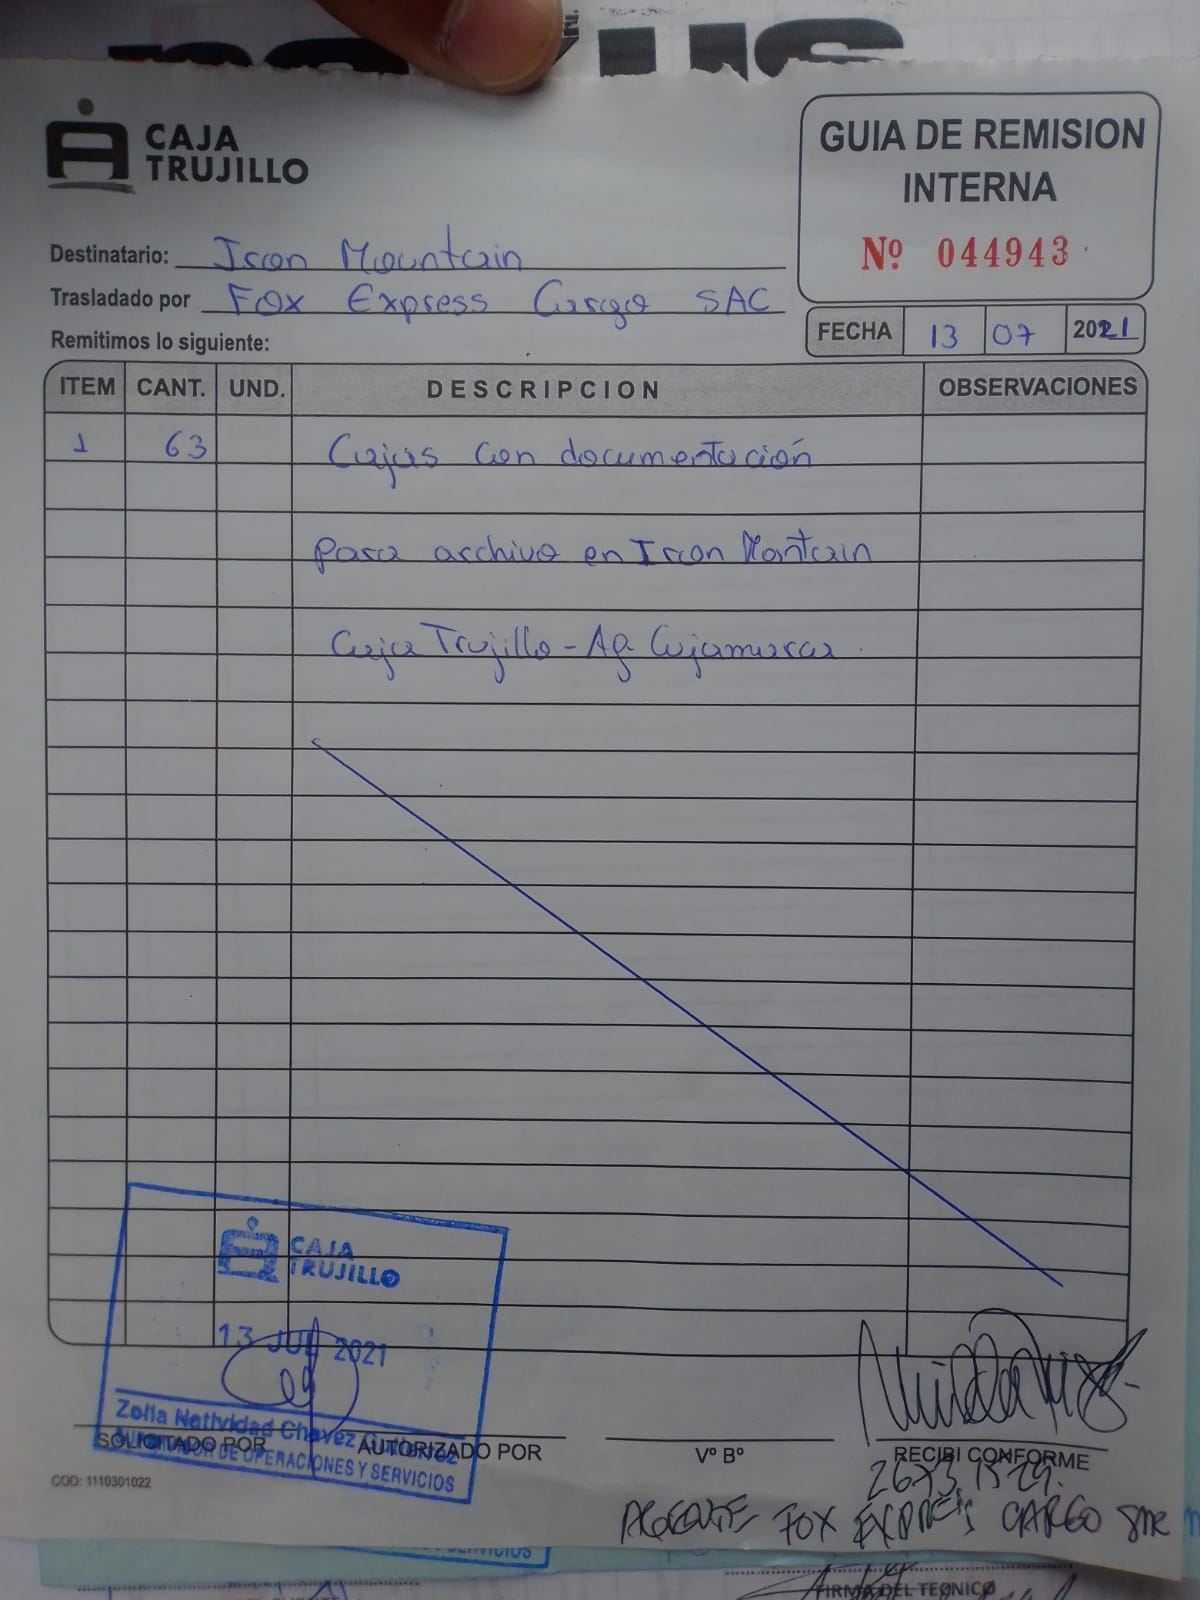 CAJA
TRUJILLO
GUIA DE REMISION
INTERNA
Nº 044943
Destinatario: Iron Mountain
Trasladado por Fox Express Cargo SAC
Remitimos lo siguiente:
FECHA 13 07 2021
ITEM CANT. UND. DESCRIPCION OBSERVACIONES
1 63 Cajas con documentación
para archivo en Iron Montain
Caja Trujillo - Ag. Cajamarca.
CAJA
TRUJILLO
13 JUL 2021
Zoila Natividad Chavez
DE OPERACIONES Y SERVICIOS
SOLICITADO POR AUTORIZADO POR Vº Bº RECIBI CONFORME
COD: 1110301022
FOX EXPRES CARGO
SERVICIOS
FIRMA DEL TECNICO